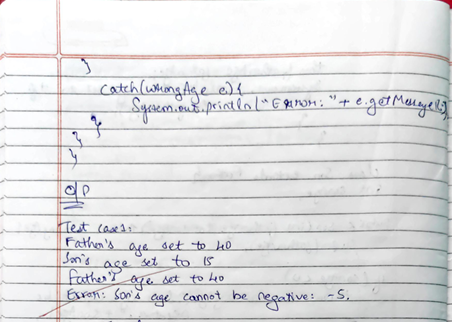 }
catch(WrongAge e){
System.out.println("Error: "+ e.getMessage());
}
}
}
O/P
Test cases:
Father's age set to 40
Son's age set to 15
Father's age set to 40
Error: Son's age cannot be negative: -5.